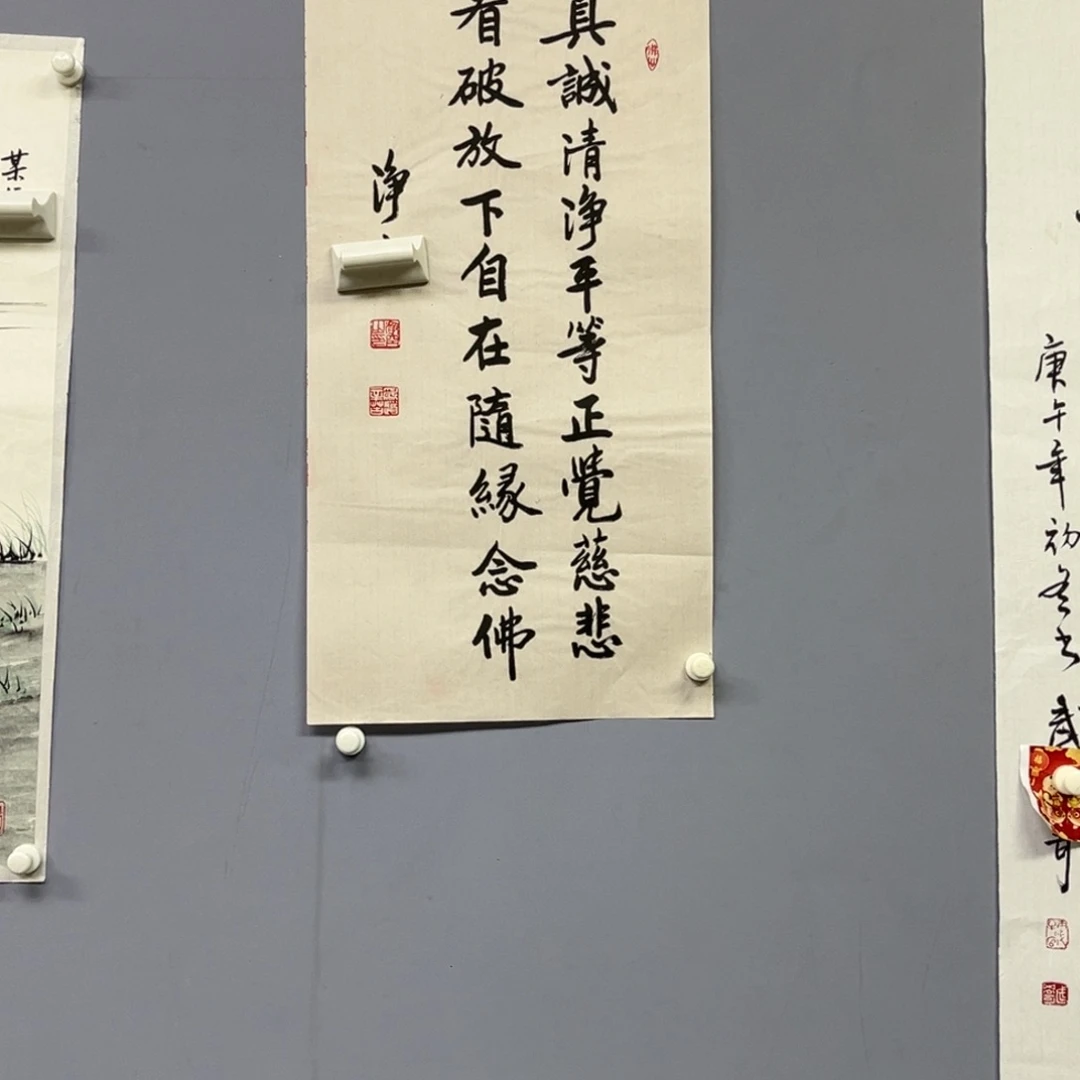 真誠清淨平等正覺慈悲
看破放下自在隨緣念佛
淨
某
庚午年初冬书